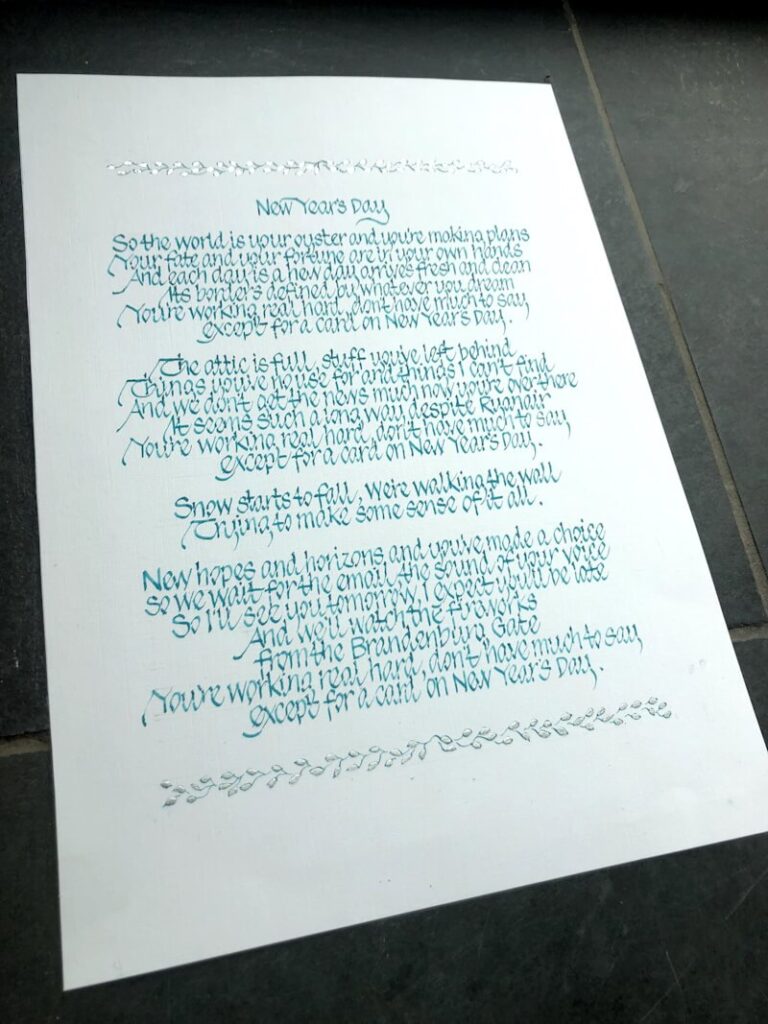 New Year's Day
So the world is your oyster and you're making plans
Your fate and your fortune are in your own hands
And each day is a new day arrives fresh and clean
Its borders defined by whatever you dream
You're working real hard, don't have much to say
except for a card on New Year's Day.
The attic is full, stuff you've left behind
Things you've no use for and things I can't find
And we don't get the news much now you're over there
It seems such a long way despite Ryanair
You're working real hard, don't have much to say
except for a card on New Year's Day.
Snow starts to fall, We're walking the wall
Trying to make some sense of it all.
New hopes and horizons and you've made a choice
so we wait for the email, the sound of your voice
So I'll see you tomorrow, I expect you'll be late
And we'll watch the fireworks
from the Brandenburg Gate
You're working real hard, don't have much to say
except for a card on New Year's Day.